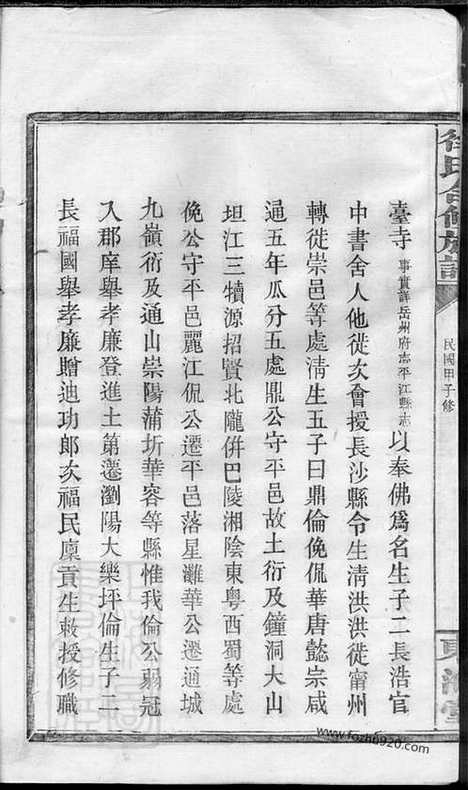 徐氏合修族譜
民國甲子修
東海堂
臺寺事實詳岳州府志平江縣志以奉佛爲名生子二長浩官
中書舍人他徙次會授長沙縣令生清洪洪徙甯州
轉徙崇邑等處清生五子曰鼎倫俛侃華唐懿宗咸
通五年瓜分五處鼎公守平邑故土衍及鐘洞大山
坦江三犢源招賢北隴併巴陵湘陰東粤西蜀等處
俛公守平邑麗江侃公遷平邑落星灘華公遷通城
九嶺衍及通山崇陽蒲圻華容等縣惟我倫公弱冠
入郡庠舉孝廉登進士第遷瀏陽大樂坪倫生子二
長福國舉孝廉贈迪功郎次福民廩貢生敕授修職
www.fozhu920.com